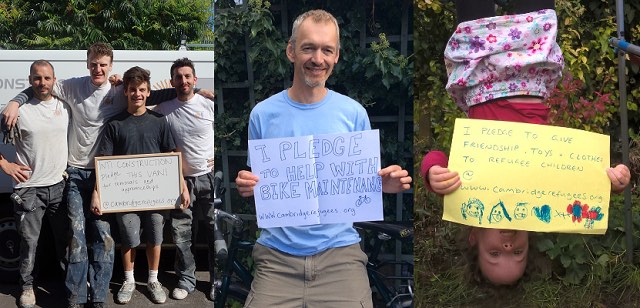 CONSTR
NTI CONSTRUCTION
THIS VAN
@ CAMBRIDGEREFUGEES.ORG
I PLEDGE
TO HELP WITH
BIKE MAINTENANCE
WWW.Cambridgerefugees.org
I PLEDGE TO GIVE
FRIENDSHIP . TOYS . CLOTHES
TO REFUGEE CHILDREN
@
www.cambridgerefugees.org